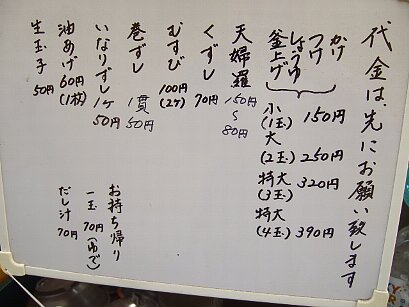 代金は、先にお願い致します
かけ
つけ
しょうゆ
釜上げ
小(1玉) 150円
大(2玉) 250円
特大(3玉) 320円
特大(4玉) 390円
天婦羅 150円〜80円
くずし 70円
むすび 100円(2ケ)
巻ずし 1貫 150円
いなりずし 1ケ 50円
油あげ 60円(1枚)
生玉子 50円
お持ち帰り
一玉 70円(ゆで)
だし汁 70円